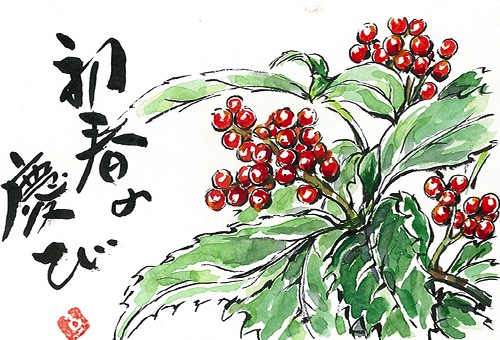 初春の
慶び